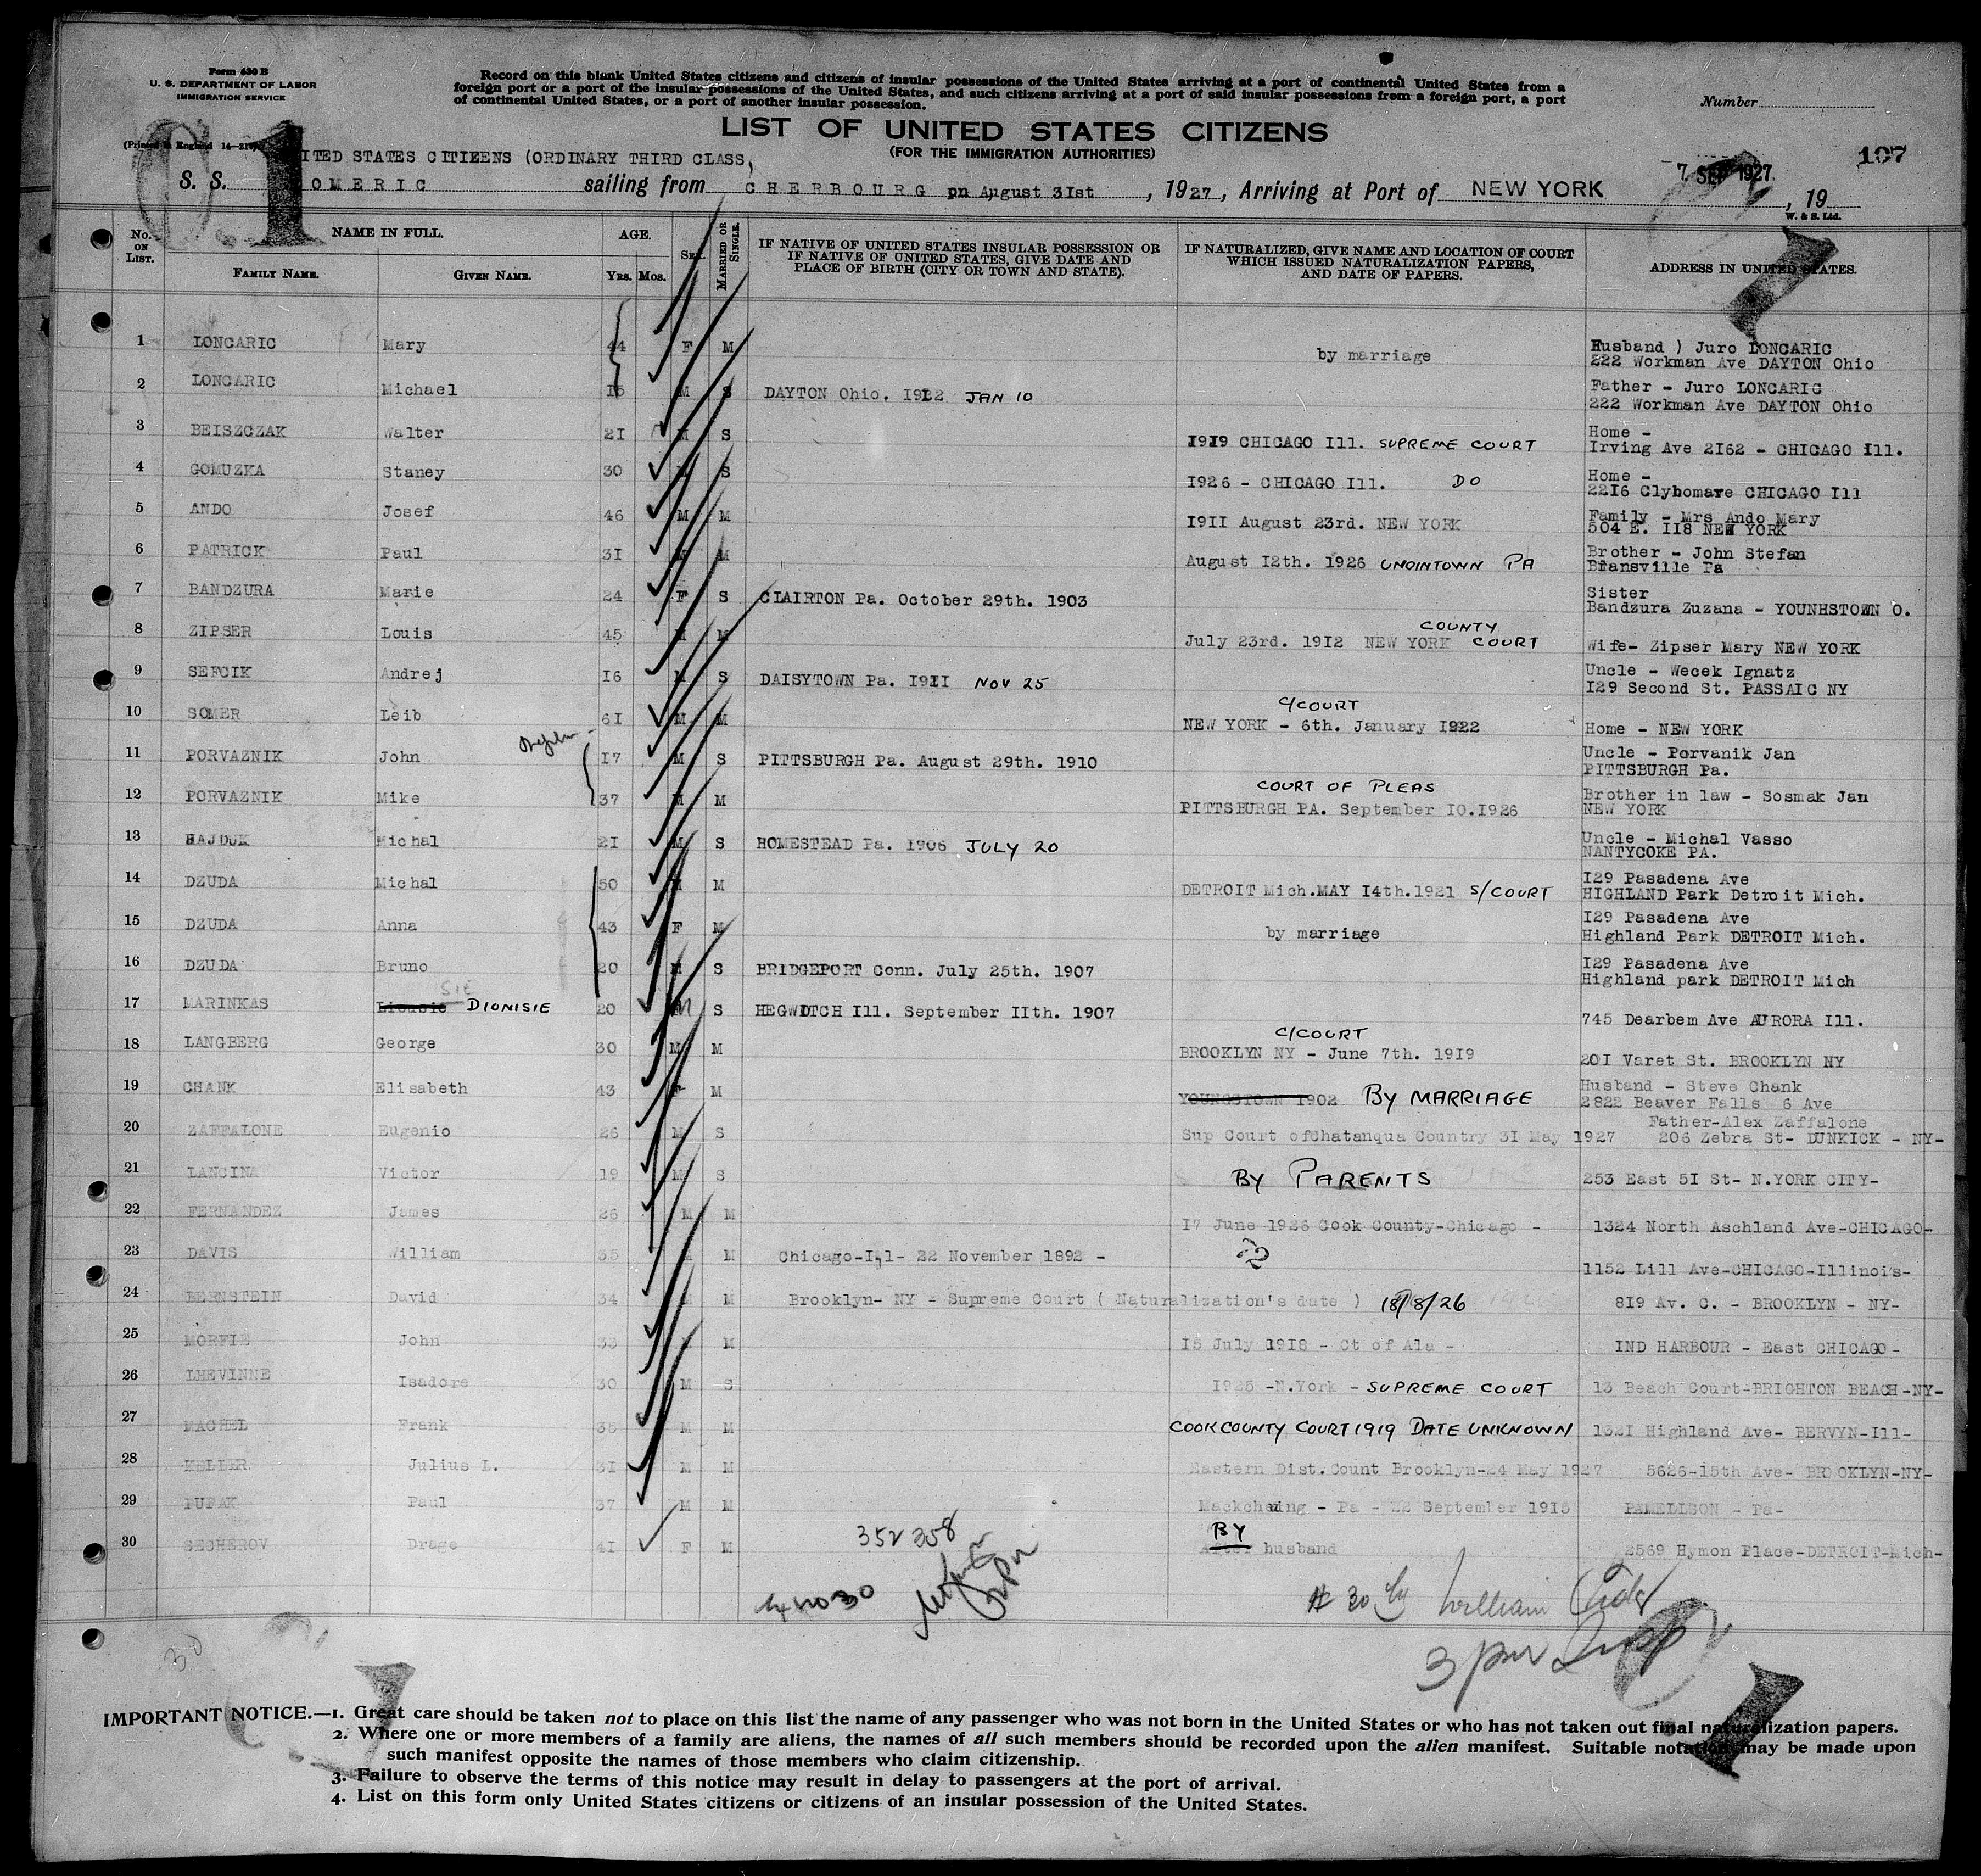 Form 630 B
U. S. DEPARTMENT OF LABOR
IMMIGRATION SERVICE
Record on this blank United States citizens and citizens of insular possessions of the United States arriving at a port of continental United States from a
foreign port or a port of the insular possessions of the United States, and such citizens arriving at a port of said insular possessions from a foreign port, a port
of continental United States, or a port of another insular possession.
Number
LIST OF UNITED STATES CITIZENS
(FOR THE IMMIGRATION AUTHORITIES)
(Printed in England
1
197
ITED STATES CITIZENS (ORDINARY THIRD CLASS,
7 SEP 1927
S. S. OMERIC sailing from CHERBOURG on August 31st, 1927, Arriving at Port of NEW YORK, 19
W. & S. Ltd.
No. ON LIST.
NAME IN FULL.
FAMILY NAME. GIVEN NAME.
AGE.
Yrs. Mos.
SEX.
MARRIED OR SINGLE.
IF NATIVE OF UNITED STATES INSULAR POSSESSION OR
IF NATIVE OF UNITED STATES, GIVE DATE AND
PLACE OF BIRTH (CITY OR TOWN AND STATE).
IF NATURALIZED, GIVE NAME AND LOCATION OF COURT
WHICH ISSUED NATURALIZATION PAPERS,
AND DATE OF PAPERS.
ADDRESS IN UNITED STATES.
1 LONCARIC Mary 44 F M by marriage Husband ) Juro LONCARIC
222 Workman Ave DAYTON Ohio
2 LONCARIC Michael 15 M S DAYTON Ohio. 1912 JAN 10 Father - Juro LONCARIC
222 Workman Ave DAYTON Ohio
3 BEISZCZAK Walter 21 M S 1919 CHICAGO Ill. SUPREME COURT Home -
Irving Ave 2162 - CHICAGO Ill.
4 GOMUZKA Staney 30 M S 1926 - CHICAGO Ill. DO Home -
2216 Clybomare CHICAGO Ill
5 ANDO Josef 46 M M 1911 August 23rd. NEW YORK Family - Mrs Ando Mary
504 E. 118 NEW YORK
6 PATRICK Paul 31 M M August 12th. 1926 UNOINTOWN PA Brother - John Stefan
Bransville Pa
7 BANDZURA Marie 24 F S CLAIRTON Pa. October 29th. 1903 Sister
Bandzura Zuzana - YOUNHSTOWN O.
8 ZIPSER Louis 45 M M July 23rd. 1912 NEW YORK COUNTY COURT Wife- Zipser Mary NEW YORK
9 SEFCIK Andrej 16 M S DAISYTOWN Pa. 1911 NOV 25 Uncle - Wecek Ignatz
129 Second St. PASSAIC NY
10 SOMER Leib 61 M M C/COURT
NEW YORK - 6th. January 1922 Home - NEW YORK
11 PORVAZNIK John 17 M S PITTSBURGH Pa. August 29th. 1910 Uncle - Porvanik Jan
PITTSBURGH Pa.
12 PORVAZNIK Mike 37 M M COURT OF PLEAS
PITTSBURGH PA. September 10.1926 Brother in law - Sosmak Jan
NEW YORK
13 HAJDUK Michal 21 M S HOMESTEAD Pa. 1906 JULY 20 Uncle - Michal Vasso
NANTYCOKE PA.
14 DZUDA Michal 50 M M DETROIT Mich.MAY 14th.1921 S/COURT 129 Pasadena Ave
HIGHLAND Park Detroit Mich.
15 DZUDA Anna 43 F M by marriage 129 Pasadena Ave
Highland Park DETROIT Mich.
16 DZUDA Bruno 20 M S BRIDGEPORT Conn. July 25th. 1907 129 Pasadena Ave
Highland park DETROIT Mich
17 MARINKAS DIONISIE 20 M S HEGWITCH Ill. September 11th. 1907 745 Dearbem Ave AURORA Ill.
18 LANGBERG George 30 M M C/COURT
BROOKLYN NY - June 7th. 1919 201 Varet St. BROOKLYN NY
19 CHANK Elisabeth 43 F M YOUNGSTOWN 1902 BY MARRIAGE Husband - Steve Chank
2822 Beaver Falls 6 Ave
20 ZAFFALONE Eugenio 26 M S Sup Court ofChatanqua Country 31 May 1927 Father-Alex Zaffalone
206 Zebra St- DUNKICK - NY-
21 LANCINA Victor 19 M S BY PARENTS 253 East 51 St- N.YORK CITY-
22 FERNANDEZ James 26 M M 17 June 1926 Cook County-Chicago - 1324 North Aschland Ave-CHICAGO-
23 DAVIS William 35 M M Chicago-Ill- 22 November 1892 - 1152 Lill Ave-CHICAGO-Illinois-
24 BERNSTEIN David 34 M M Brooklyn- NY - Supreme Court ( Naturalization's date ) 18/8/26 819 Av. C. - BROOKLYN - NY-
25 MORFIE John 33 M M 15 July 1918 - Ct of Ala - IND HARBOUR - East CHICAGO -
26 LHEVINNE Isadore 30 M S 1925 -N.York - SUPREME COURT 13 Beach Court-BRIGHTON BEACH-NY-
27 MACHEL Frank 36 M M COOK COUNTY COURT 1919 DATE UNKNOWN 1321 Highland Ave- BERVYN-Ill-
28 KELLER Julius L. 31 M M Eastern Dist.Count Brooklyn-24 May 1927 5626-15th Ave- BROOKLYN-NY-
29 Paul 37 M M - Pa - 22 September 1915 PAMELISON - Pa-
30 SECHEROV Drage 41 F M BY
husband 2569 Hymon Place-DETROIT-Mich-
352 358
# 30 William
3 pm
30
IMPORTANT NOTICE.—1. Great care should be taken not to place on this list the name of any passenger who was not born in the United States or who has not taken out final naturalization papers.
2. Where one or more members of a family are aliens, the names of all such members should be recorded upon the alien manifest. Suitable notation may be made upon
such manifest opposite the names of those members who claim citizenship.
3. Failure to observe the terms of this notice may result in delay to passengers at the port of arrival.
4. List on this form only United States citizens or citizens of an insular possession of the United States.